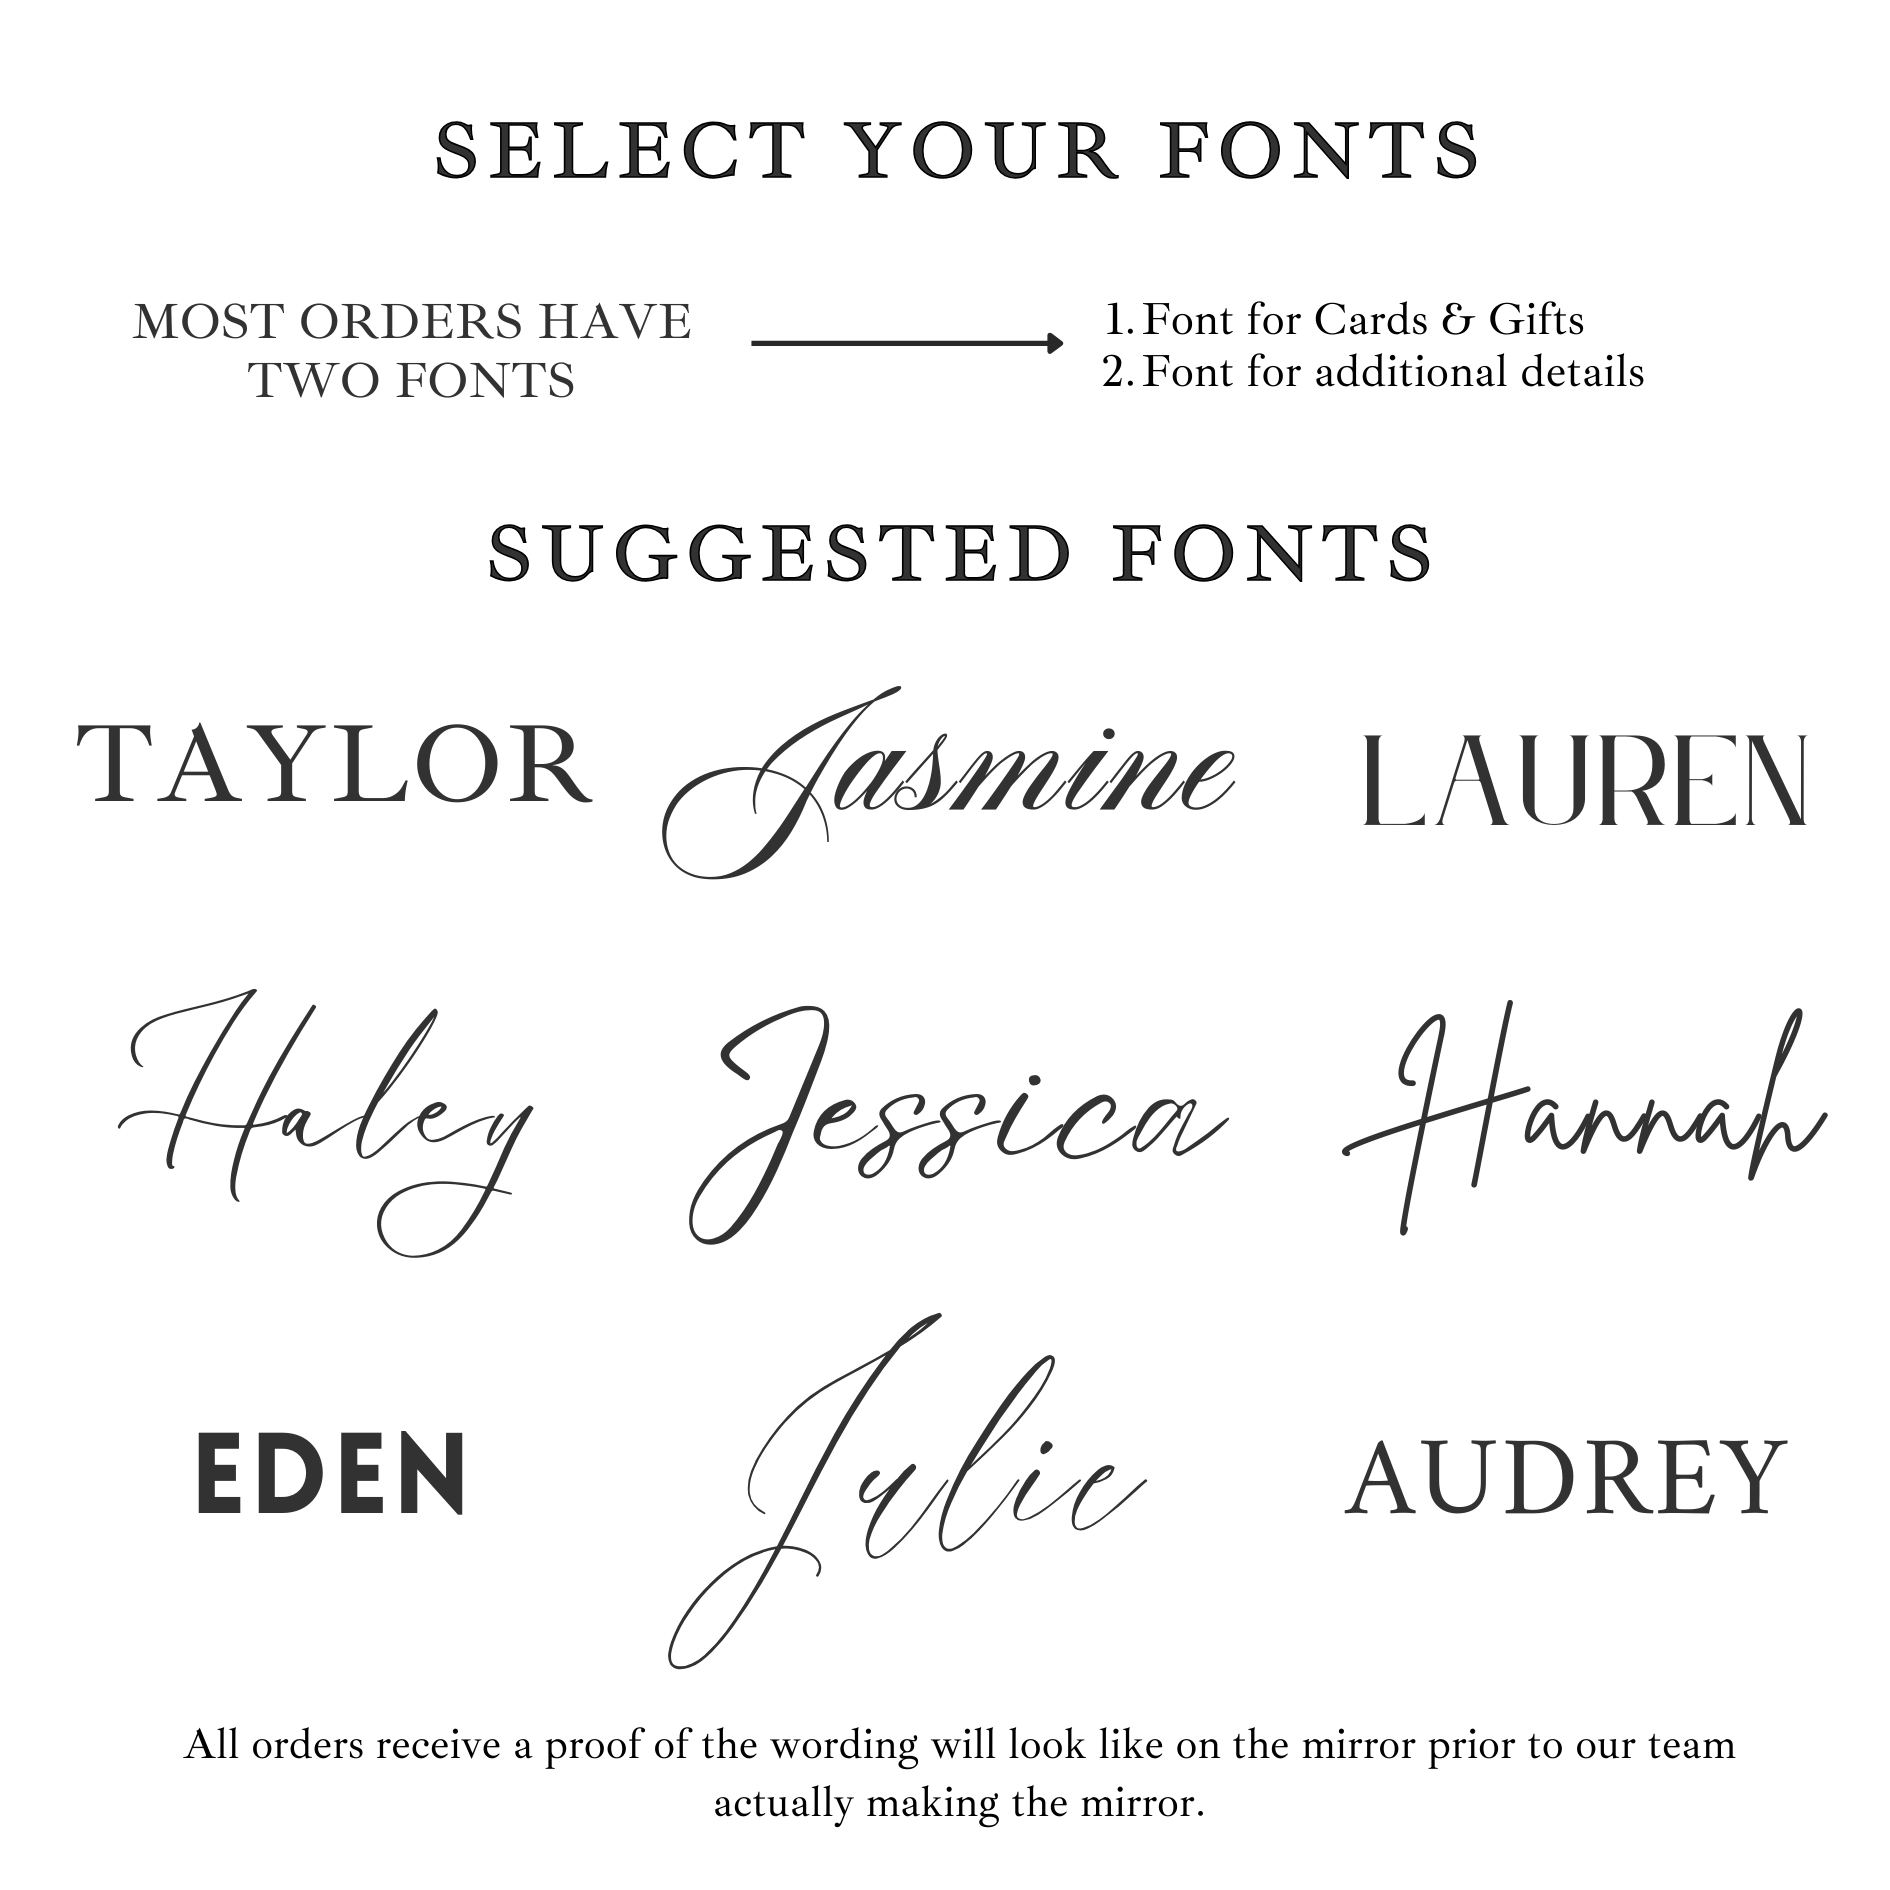 SELECT YOUR FONTS
MOST ORDERS HAVE
TWO FONTS
1. Font for Cards & Gifts
2. Font for additional details
SUGGESTED FONTS
TAYLOR Jasmine LAUREN
Haley Jessica Hannah
EDEN Julie AUDREY
All orders receive a proof of the wording will look like on the mirror prior to our team
actually making the mirror.